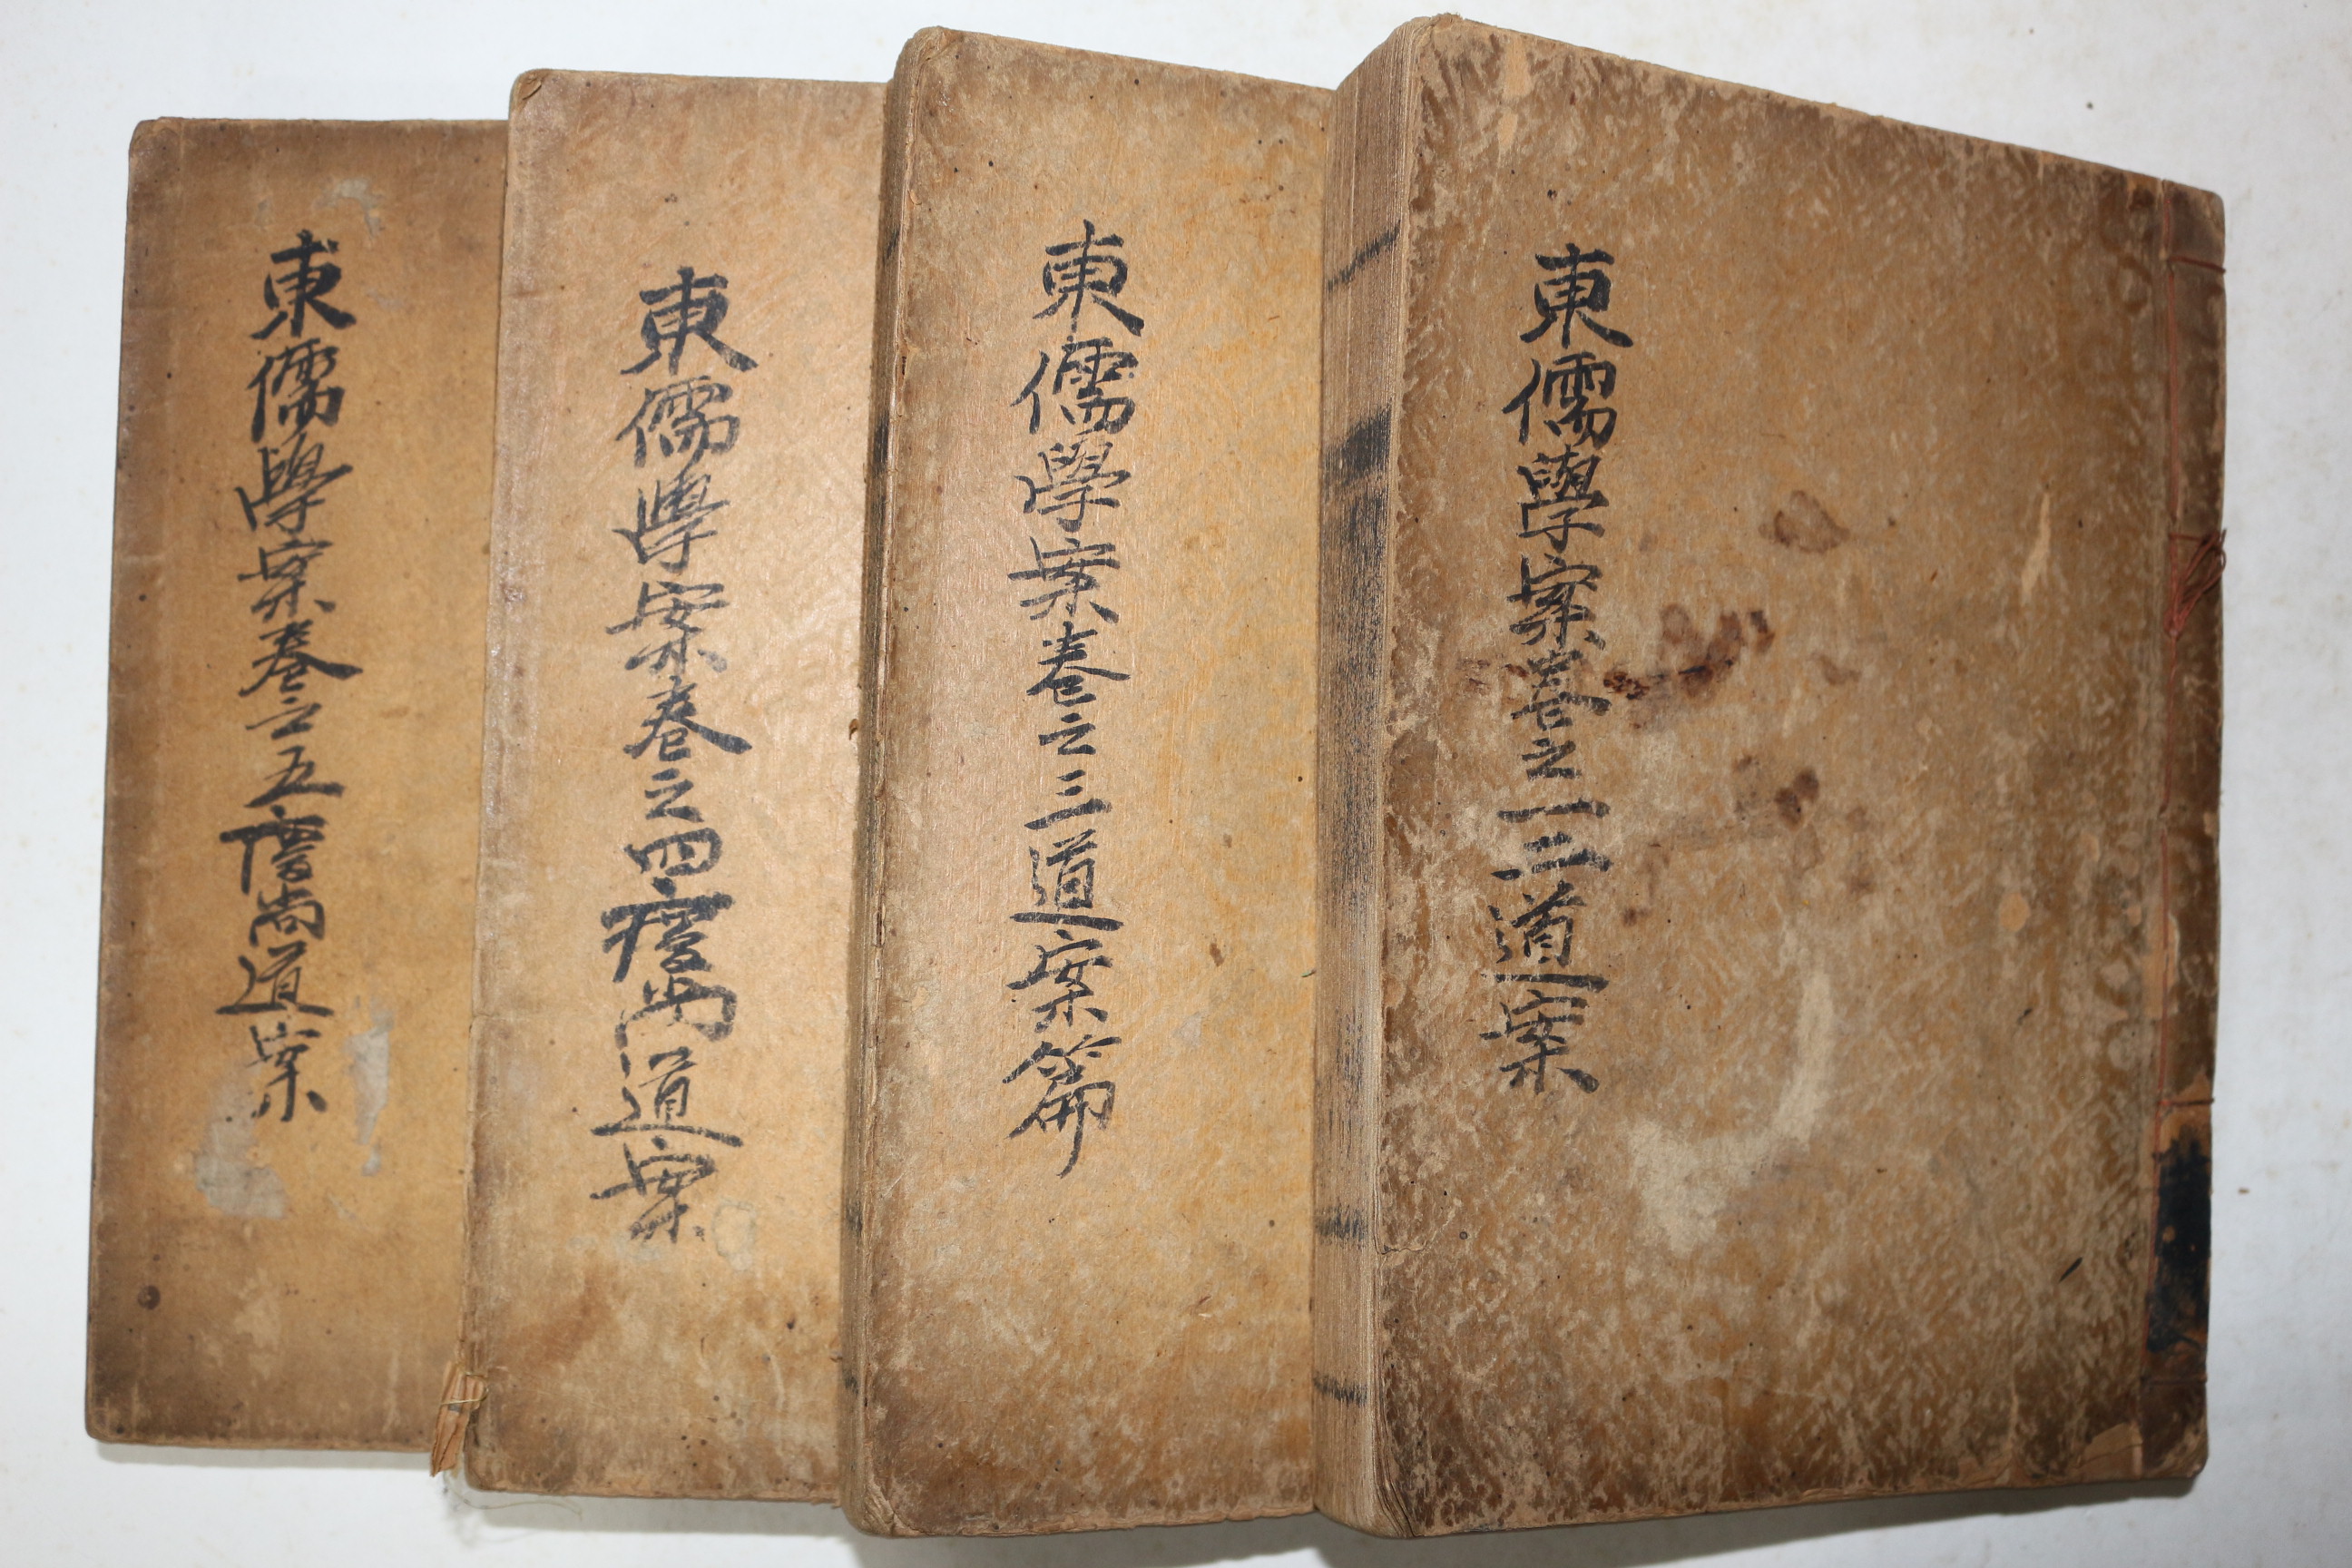 東儒學案卷之一三道案
東儒學案卷之三道案篇
東儒學案卷之四慶尚道案
東儒學案卷之五慶尚道案